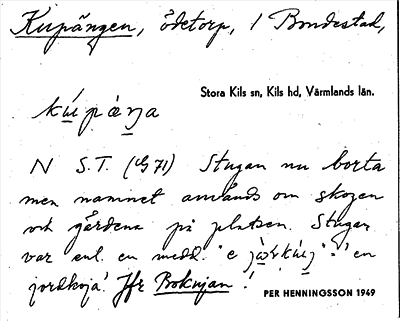 Kupängen, ödetorp, 1 Bondestad,
Stora Kils sn, Kils hd, Värmlands län.
N S.T. (G71) Stugan nu borta
men namnet används om skogen
och gärdena på platsen. Stugan
var enl. en medd. "e
"= 'en
jordkoja'. Jfr Bokujan!
PER HENNINGSSON 1949